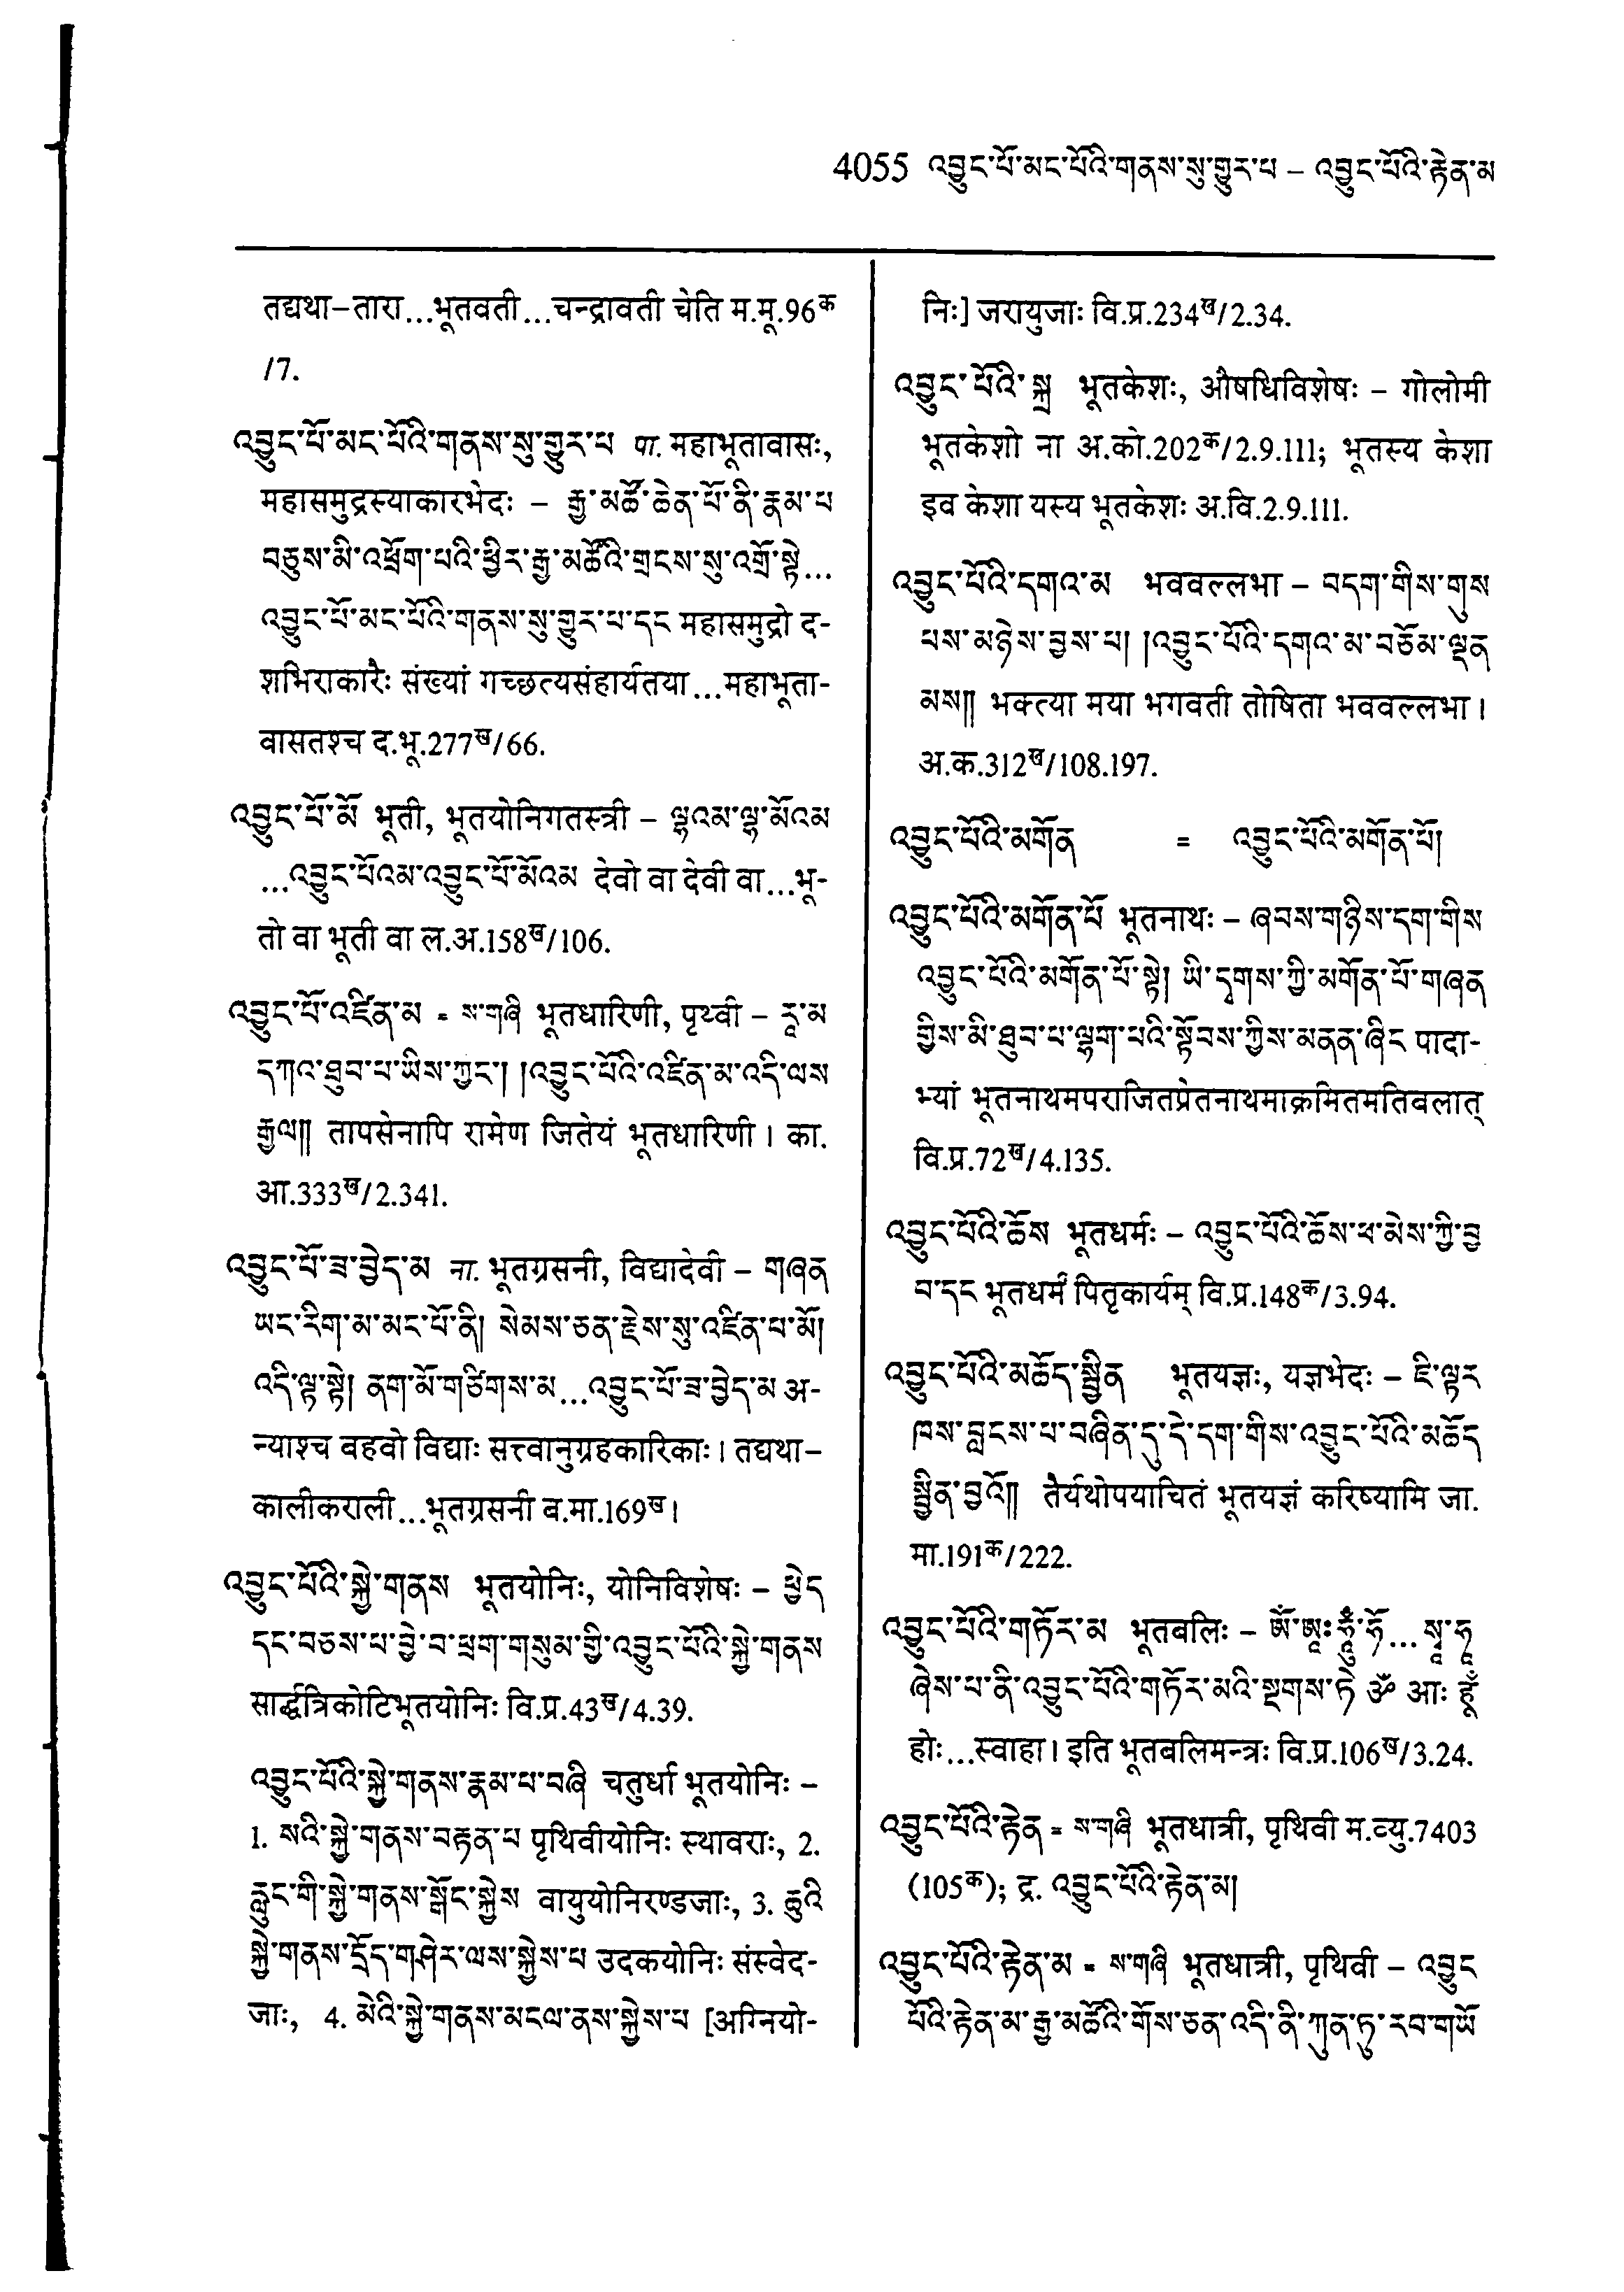 4055 འབྱུང་པོ་མང་པོའི་གནས་སུ་གྱུར་པ – འབྱུང་པོའི་རྟེན་མ
तद्यथा–तारा...भूतवती...चन्द्रावती चेति म.मू.96क
/7.
འབྱུང་པོ་མང་པོའི་གནས་སུ་གྱུར་པ पा. महाभूतावासः,
महासमुद्रस्याकारभेदः – རྒྱ་མཚོ་ཆེན་པོ་ནི་རྣམ་པ
བཅུས་མི་འཕྲོག་པའི་ཕྱིར་རྒྱ་མཚོའི་གྲངས་སུ་འགྲོ་སྟེ...
འབྱུང་པོ་མང་པོའི་གནས་སུ་གྱུར་པ་དང महासमुद्रो द-
शभिराकारैः संख्यां गच्छत्यसंहार्यतया...महाभूता-
वासतश्च द.भू.277ख/66.
འབྱུང་པོ་མོ भूती, भूतयोनिगतस्त्री – ལྷའམ་ལྷ་མོའམ
...འབྱུང་པོའམ་འབྱུང་པོ་མོའམ देवो वा देवी वा...भू-
तो वा भूती वा ल.अ.158ख/106.
འབྱུང་པོ་འཛིན་མ = ས་གཞི भूतधारिणी, पृथ्वी – རཱ་མ
དཀའ་ཐུབ་པ་ཡིས་ཀྱང་། །འབྱུང་པོའི་འཛིན་མ་འདི་ལས
རྒྱལ།། तापसेनापि रामेण जितेयं भूतधारिणी । का.
आ.333ख/2.341.
འབྱུང་པོ་ཟ་བྱེད་མ ना. भूतग्रसनी, विद्यादेवी – གཞན
ཡང་རིག་མ་མང་པོ་ནི། སེམས་ཅན་རྗེས་སུ་འཛིན་པ་མོ།
འདི་ལྟ་སྟེ། ནག་མོ་གཙིགས་མ...འབྱུང་པོ་ཟ་བྱེད་མ अ-
न्याश्च वहवो विद्याः सत्त्वानुग्रहकारिकाः । तद्यथा–
कालीकराली...भूतग्रसनी ब.मा.169ख ।
འབྱུང་པོའི་སྐྱེ་གནས भूतयोनिः, योनिविशेषः – ཕྱེད
དང་བཅས་པ་བྱེ་བ་ཕྲག་གསུམ་གྱི་འབྱུང་པོའི་སྐྱེ་གནས
सार्द्धत्रिकोटिभूतयोनिः वि.प्र.43ख/4.39.
འབྱུང་པོའི་སྐྱེ་གནས་རྣམ་པ་བཞི चतुर्धा भूतयोनिः –
1. སའི་སྐྱེ་གནས་བརྟན་པ पृथिवीयोनिः स्थावराः, 2.
རླུང་གི་སྐྱེ་གནས་སྒོང་སྐྱེས वायुयोनिरण्डजाः, 3. ཆུའི
སྐྱེ་གནས་དྲོད་གཤེར་ལས་སྐྱེས་པ उदकयोनिः संस्वेद-
जाः, 4. མེའི་སྐྱེ་གནས་མངལ་ནས་སྐྱེས་པ [अग्नियो-
निः] जरायुजाः वि.प्र.234ख/2.34.
འབྱུང་པོའི་སྐྲ भूतकेशः, औषधिविशेषः – गोलोमी
भूतकेशो ना अ.को.202क/2.9.111; भूतस्य केशा
इव केशा यस्य भूतकेशः अ.वि.2.9.111.
འབྱུང་པོའི་དགའ་མ भववल्लभा – བདག་གིས་གུས
པས་མཉེས་བྱས་པ། །འབྱུང་པོའི་དགའ་མ་བཅོམ་ལྡན
མས།། भक्त्या मया भगवती तोषिता भववल्लभा ।
अ.क.312ख/108.197.
འབྱུང་པོའི་མགོན = འབྱུང་པོའི་མགོན་པོ།
འབྱུང་པོའི་མགོན་པོ भूतनाथः – ཞབས་གཉིས་དག་གིས
འབྱུང་པོའི་མགོན་པོ་སྟེ། ཡི་དྭགས་ཀྱི་མགོན་པོ་གཞན
གྱིས་མི་ཐུབ་པ་ལྷག་པའི་སྟོབས་ཀྱིས་མནན་ཞིང पादा-
भ्यां भूतनाथमपराजितप्रेतनाथमाक्रमितमतिबलात्
वि.प्र.72ख/4.135.
འབྱུང་པོའི་ཆོས भूतधर्मः – འབྱུང་པོའི་ཆོས་ཕ་མེས་ཀྱི་བྱ
བ་དང भूतधर्मं पितृकार्यम् वि.प्र.148क/3.94.
འབྱུང་པོའི་མཆོད་སྦྱིན भूतयज्ञः, यज्ञभेदः – ཇི་ལྟར
ཁས་བླངས་པ་བཞིན་དུ་དེ་དག་གིས་འབྱུང་པོའི་མཆོད
སྦྱིན་བྱའོ།། तैर्यथोपयाचितं भूतयज्ञं करिष्यामि जा.
मा.191क/222.
འབྱུང་པོའི་གཏོར་མ भूतबलिः – ཨོཾ་ཨཱཿ་ཧཱུྃ་ཧོ...སྭཱ་ཧཱ
ཞེས་པ་ནི་འབྱུང་པོའི་གཏོར་མའི་སྔགས་ཏེ ॐ आः हूँ
होः...स्वाहा । इति भूतबलिमन्त्रः वि.प्र.106ख/3.24.
འབྱུང་པོའི་རྟེན = ས་གཞི भूतधात्री, पृथिवी म.व्यु.7403
(105क); द्र. འབྱུང་པོའི་རྟེན་མ།
འབྱུང་པོའི་རྟེན་མ = ས་གཞི भूतधात्री, पृथिवी – འབྱུང
པོའི་རྟེན་མ་རྒྱ་མཚོའི་གོས་ཅན་འདི་ནི་ཀུན་ཏུ་རབ་གཡོ